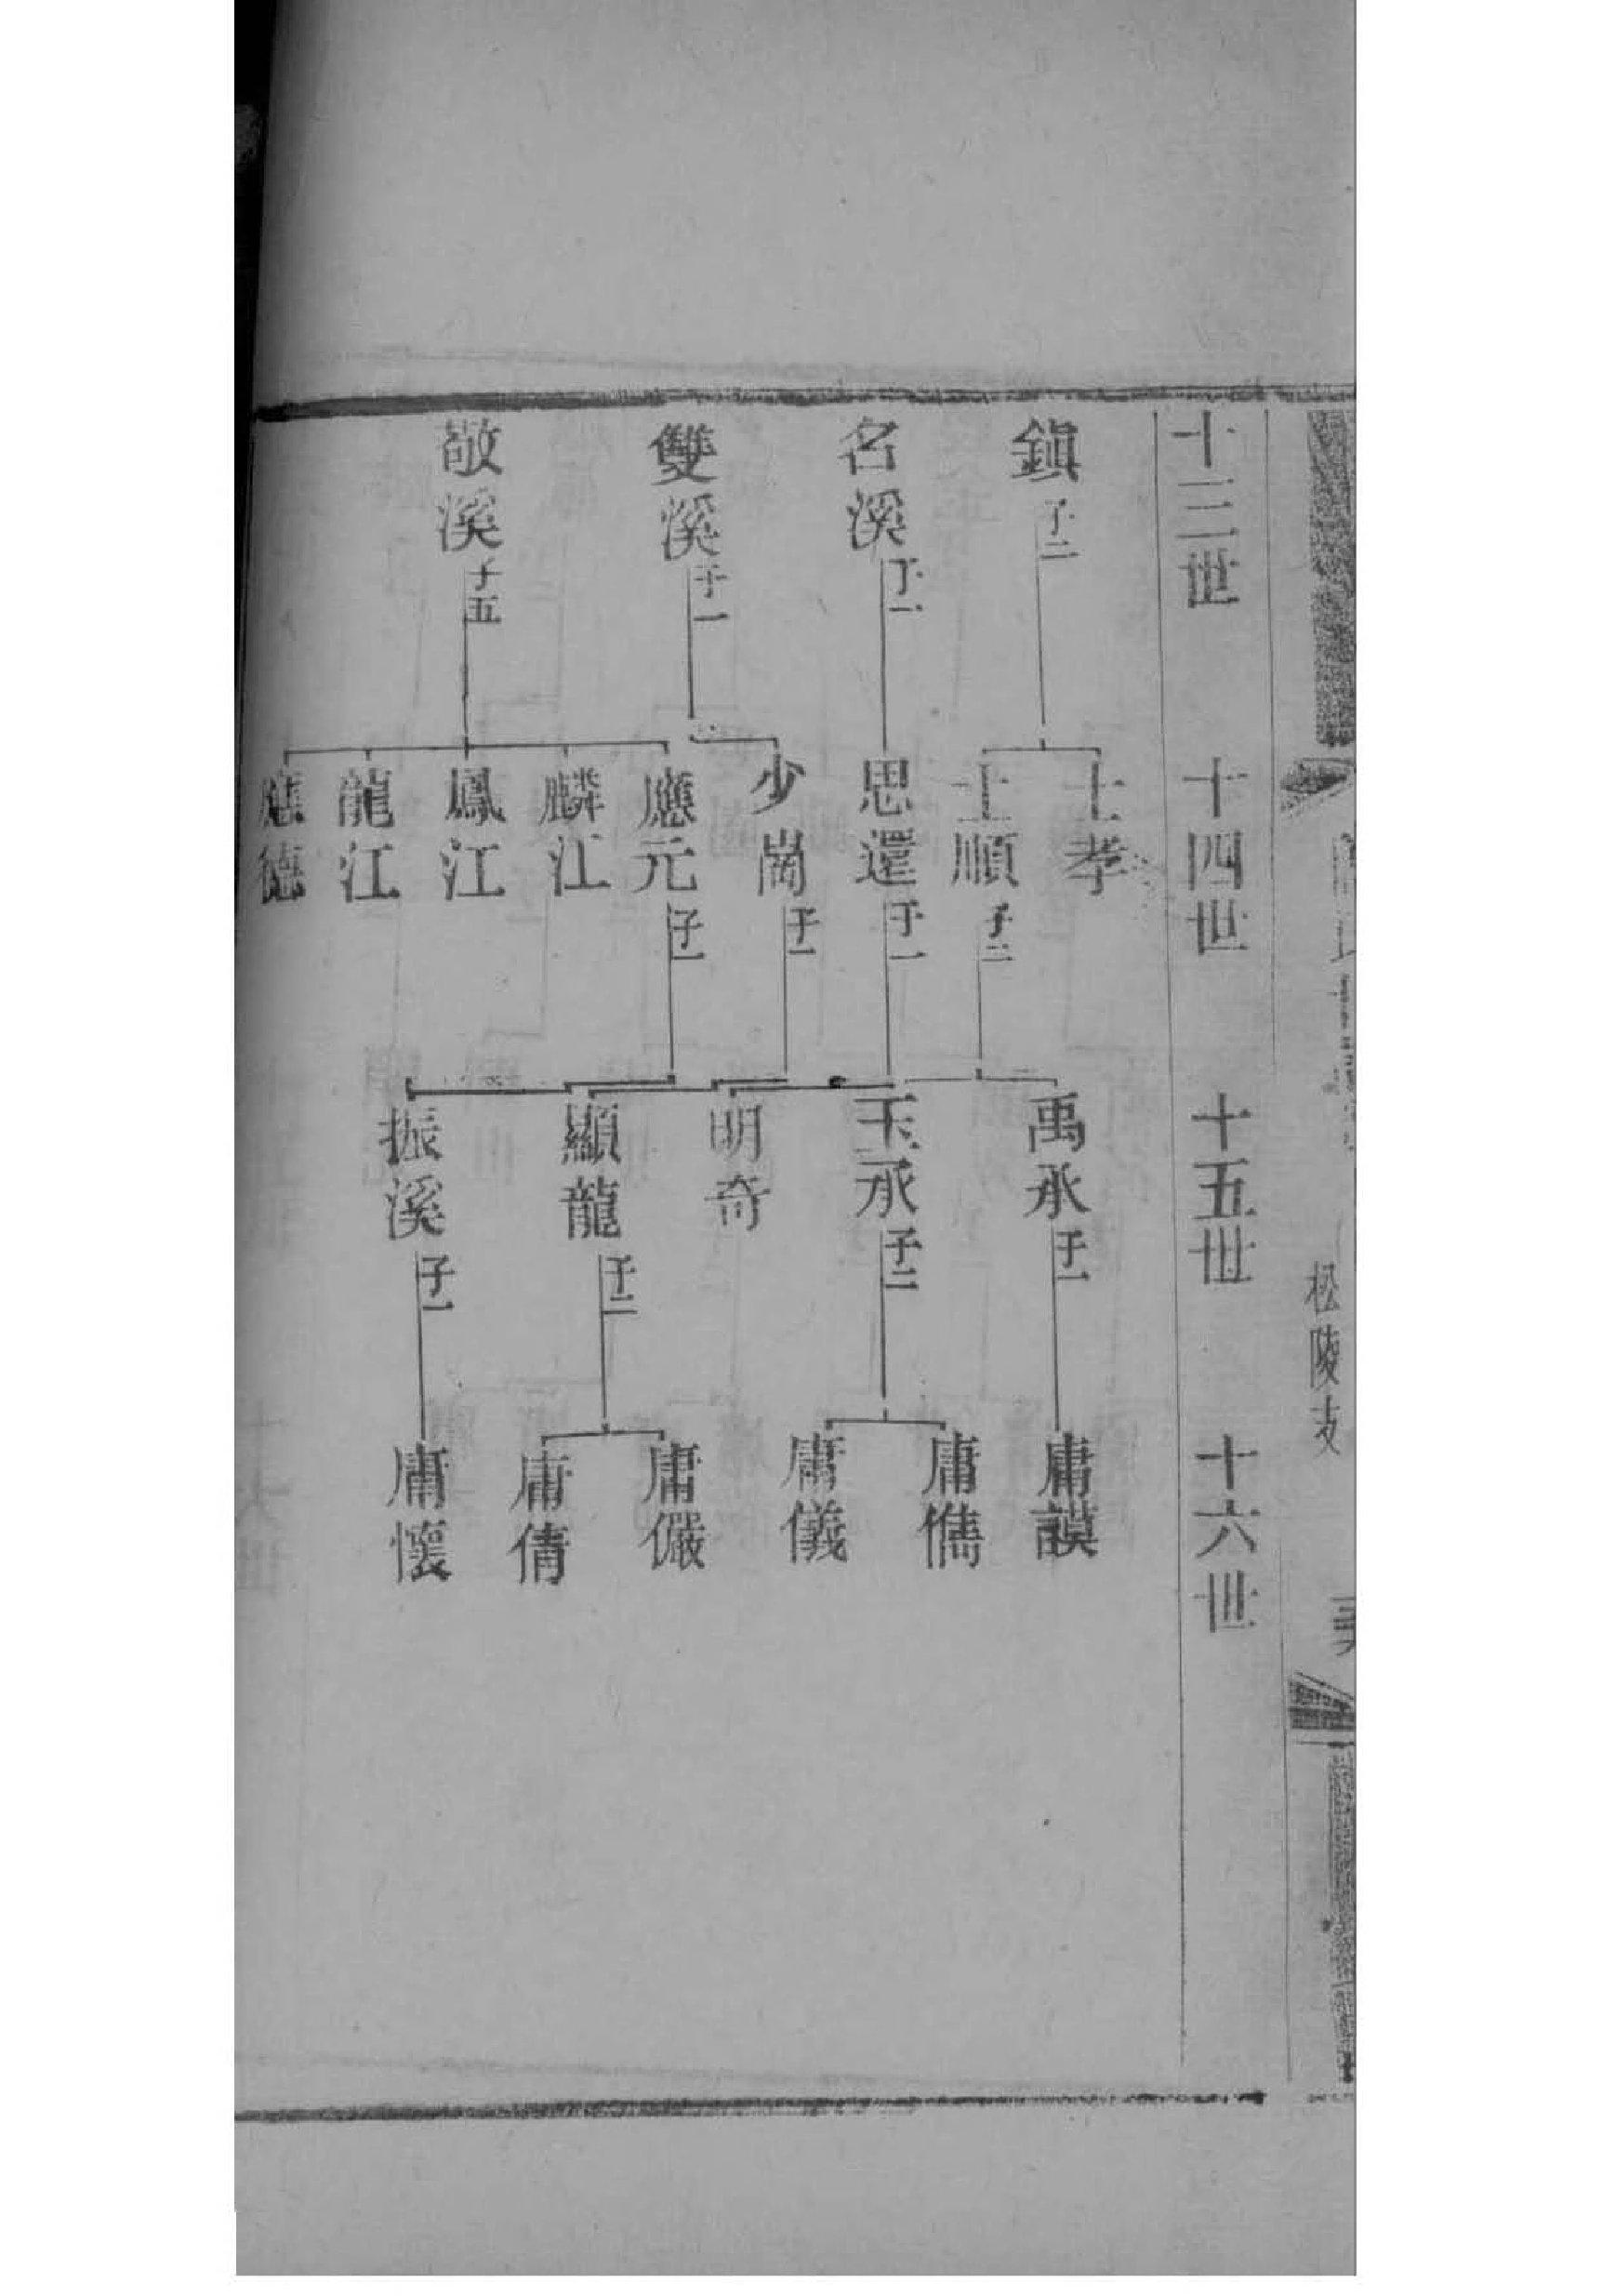 松陵支
十三世
十四世
十五世
十六世
鎮 子二
名溪 子一
雙溪 子一
敬溪 子五
士孝
士順 子二
思還 子一
少崗 子一
應元 子一
麟江
鳳江
龍江
應德
禹承 子一
玉承 子二
明奇
顯龍 子二
振溪 子一
庸謨
庸儁
庸儀
庸儼
庸倩
庸懷